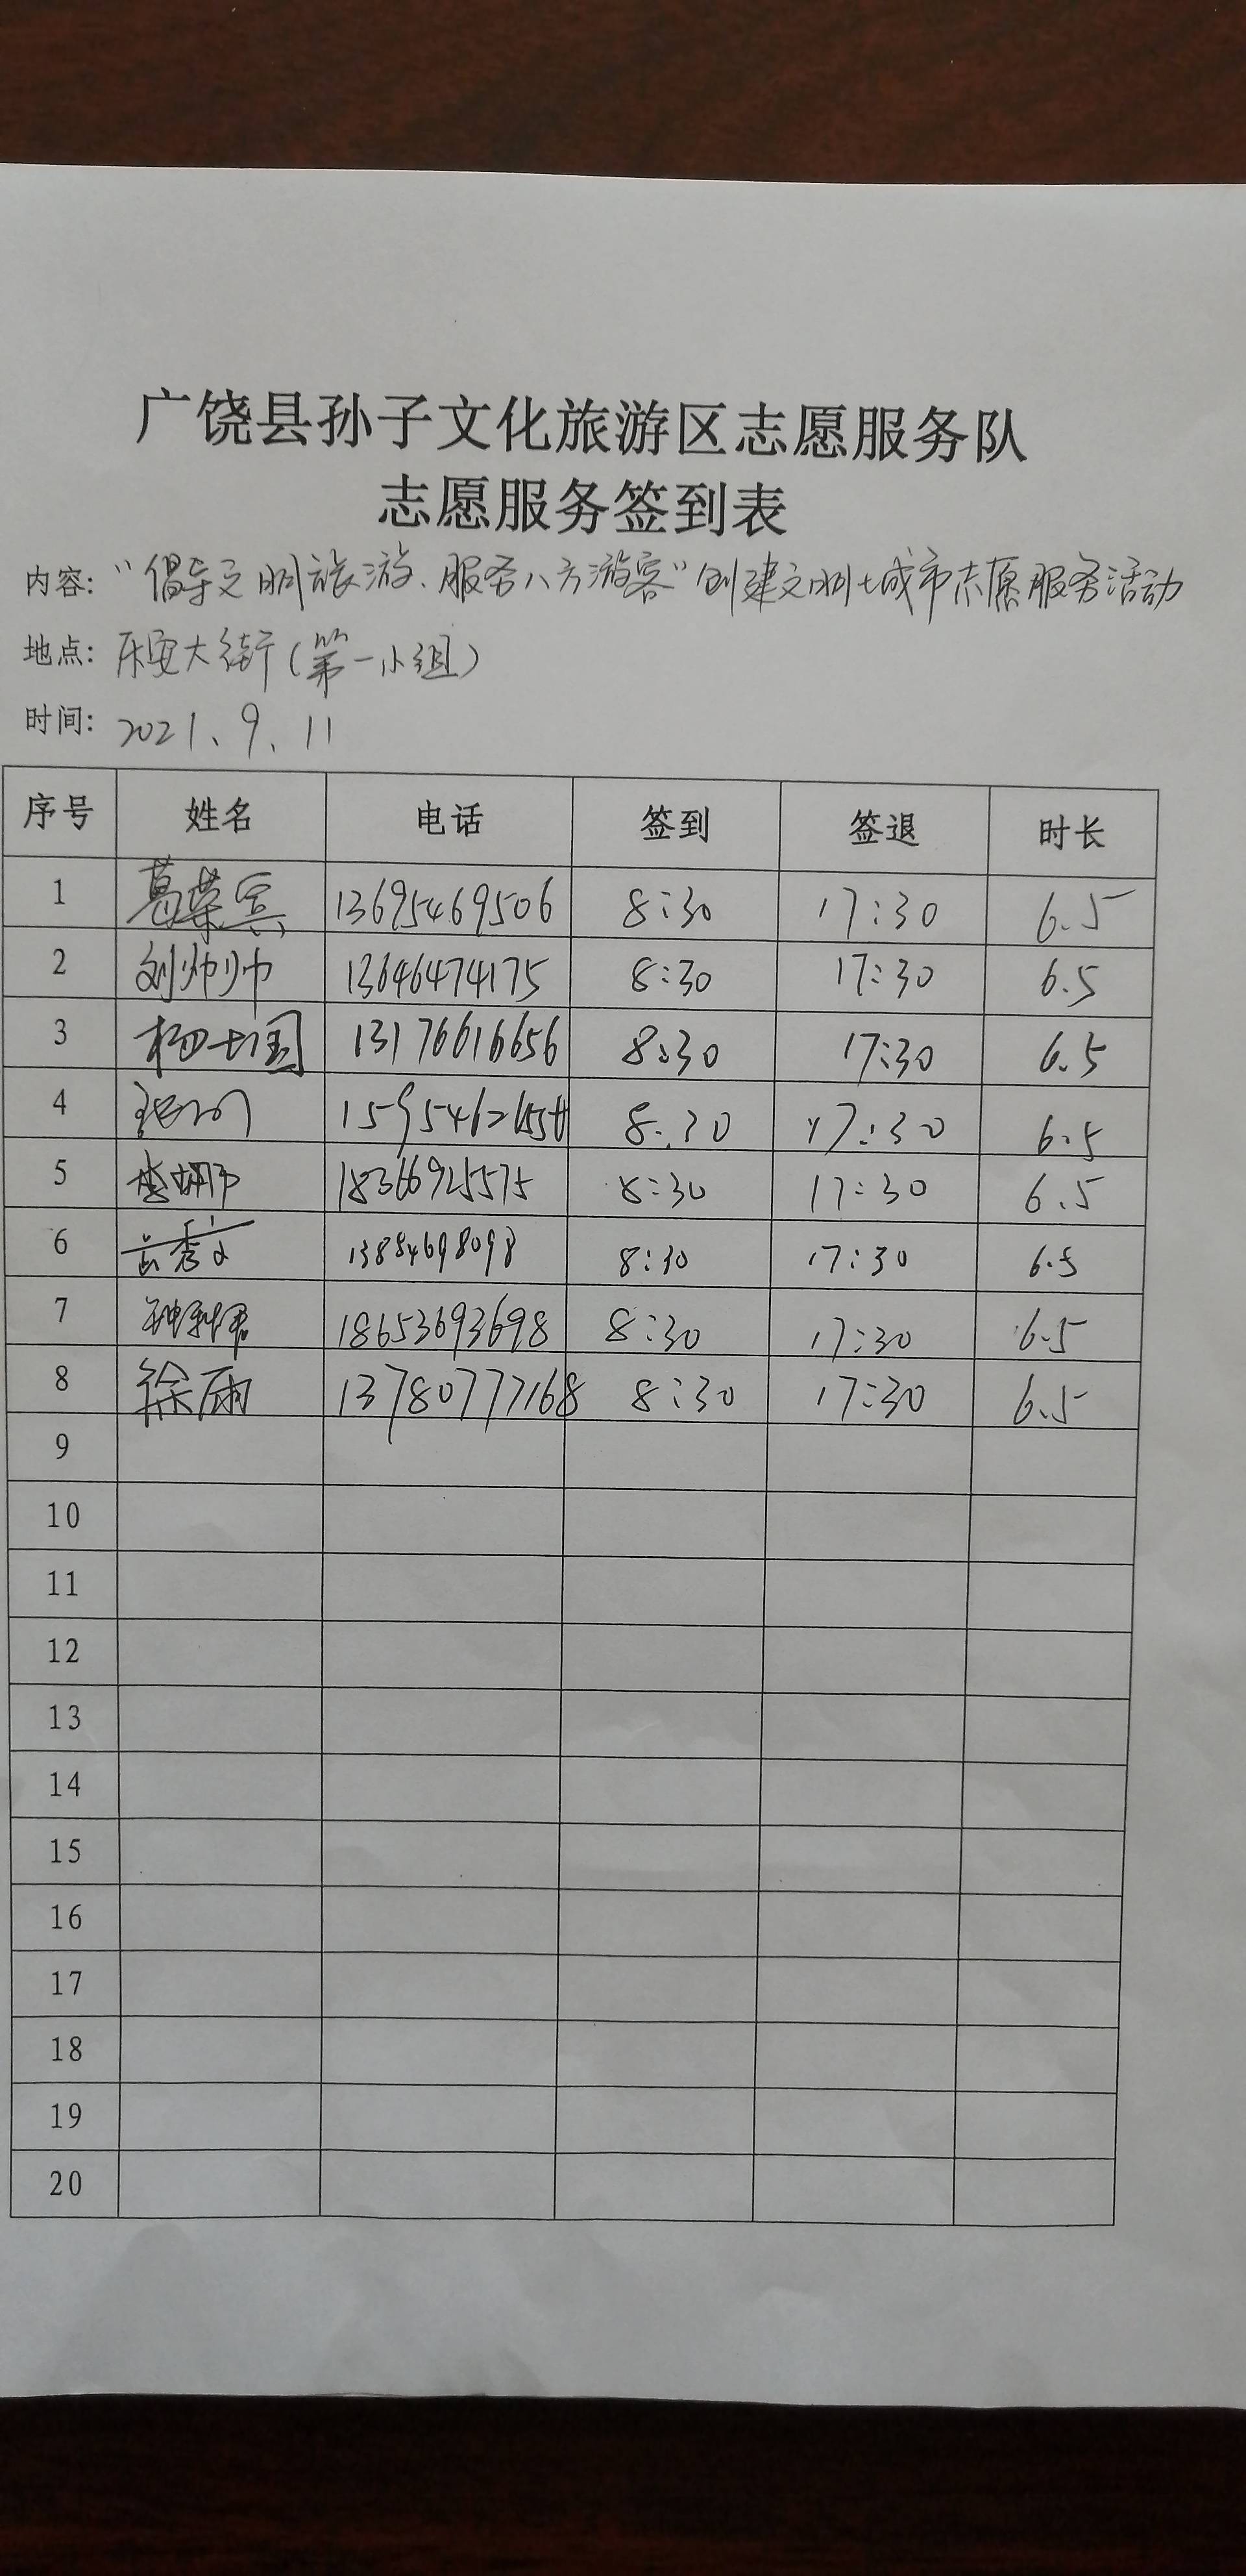 广饶县孙子文化旅游区志愿服务队
志愿服务签到表
内容: "倡导文明旅游、服务八方游客"创建文明城市志愿服务活动
地点: 乐安大街(第一小组)
时间: 2021、9、11
序号 姓名 电话 签到 签退 时长
1 葛荣宾 13695469506 8:30 17:30 6.5
2 刘帅帅 13646474175 8:30 17:30 6.5
3 杨士国 13176616656 8:30 17:30 6.5
4 8:30 17:30 6.5
5 18366925575 8:30 17:30 6.5
6 13884698098 8:30 17:30 6.5
7 18653693698 8:30 17:30 6.5
8 徐雨 13780777168 8:30 17:30 6.5
9
10
11
12
13
14
15
16
17
18
19
20